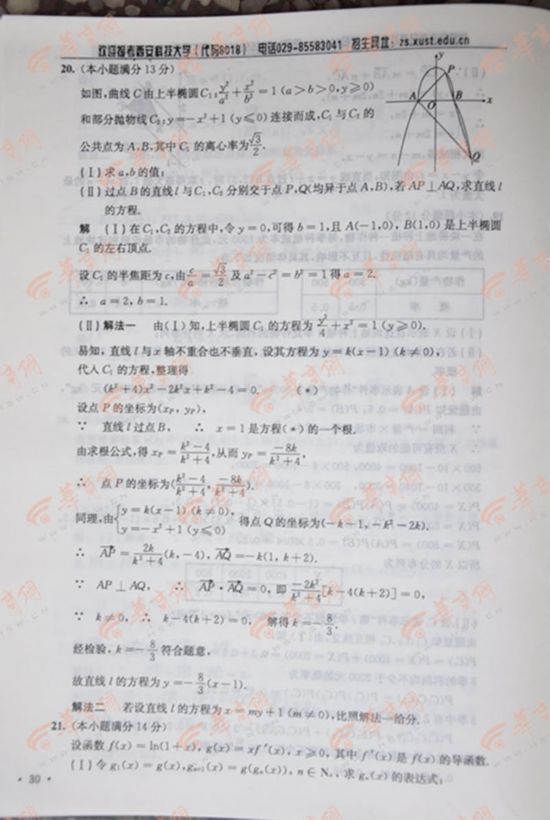 欢迎报考西安科技大学(代码8018) 电话029-85583041 招生网址:zs.xust.edu.cn
20.(本小题满分13分)
如图,曲线C由上半椭圆C₁:y²/a²+x²/b²=1(a>b>0,y≥0)
和部分抛物线C₂:y=-x²+1(y≤0)连接而成,C₁与C₂的
公共点为A,B,其中C₁的离心率为√3/2.
y
P
A
O
B
x
Q
(Ⅰ)求a,b的值;
(Ⅱ)过点B的直线l与C₁,C₂分别交于点P,Q(均异于点A,B),若AP⊥AQ,求直线l
的方程.
解 (Ⅰ)在C₁,C₂的方程中,令y=0,可得b=1,且A(-1,0),B(1,0)是上半椭圆
C₁的左右顶点.
设C₁的半焦距为c,由c/a=√3/2及a²-c²=b²=1得a=2.
∴ a=2,b=1.
(Ⅱ)解法一 由(Ⅰ)知,上半椭圆C₁的方程为y²/4+x²=1(y≥0).
易知,直线l与x轴不重合也不垂直,设其方程为y=k(x-1)(k≠0),
代入C₁的方程,整理得
(k²+4)x²-2k²x+k²-4=0. (*)
设点P的坐标为(xP,yP),
∵ 直线l过点B, ∴ x=1是方程(*)的一个根.
由求根公式,得xP=(k²-4)/(k²+4),从而yP=-8k/(k²+4),
∴ 点P的坐标为((k²-4)/(k²+4),-8k/(k²+4)).
同理,由{y=k(x-1)(k≠0), y=-x²+1(y≤0) 得点Q的坐标为(-k-1,-k²-2k).
∴ AP=2k/(k²+4)(k,-4),AQ=-k(1,k+2).
∵ AP⊥AQ, ∴ AP·AQ=0,即-2k²/(k²+4)[k-4(k+2)]=0,
∵ k≠0,∴ k-4(k+2)=0, 解得k=-8/3.
经检验,k=-8/3符合题意,
故直线l的方程为y=-8/3(x-1).
解法二 若设直线l的方程为x=my+1(m≠0),比照解法一给分.
21.(本小题满分14分)
设函数f(x)=ln(1+x),g(x)=xf′(x),x≥0,其中f′(x)是f(x)的导函数.
(Ⅰ)令g₁(x)=g(x),gₙ₊₁(x)=g(gₙ(x)),n∈N₊,求gₙ(x)的表达式;
·30·